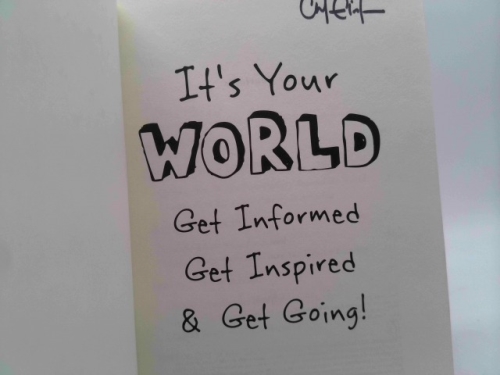 It's Your
WORLD
Get Informed
Get Inspired
& Get Going!